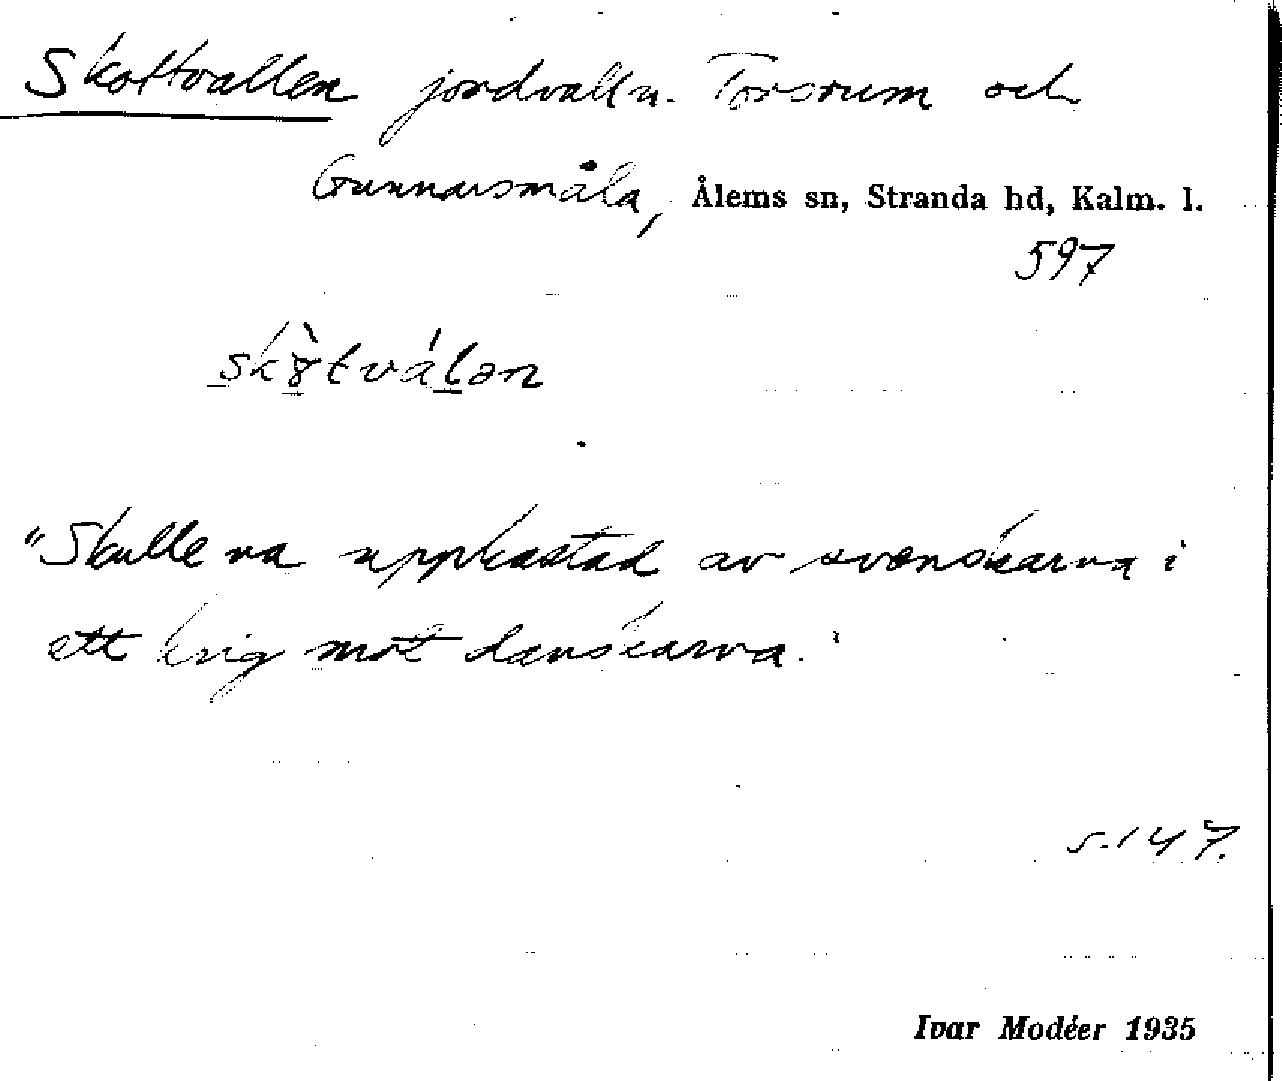 Skottvallen jordvall n. Torsrum och
Gunnarsmåla, Ålems sn, Stranda hd, Kalm. l.
597
"Skulle va uppkastad av svenskarna i
ett krig mot danskarna."
s. 147.
Ivar Modéer 1935